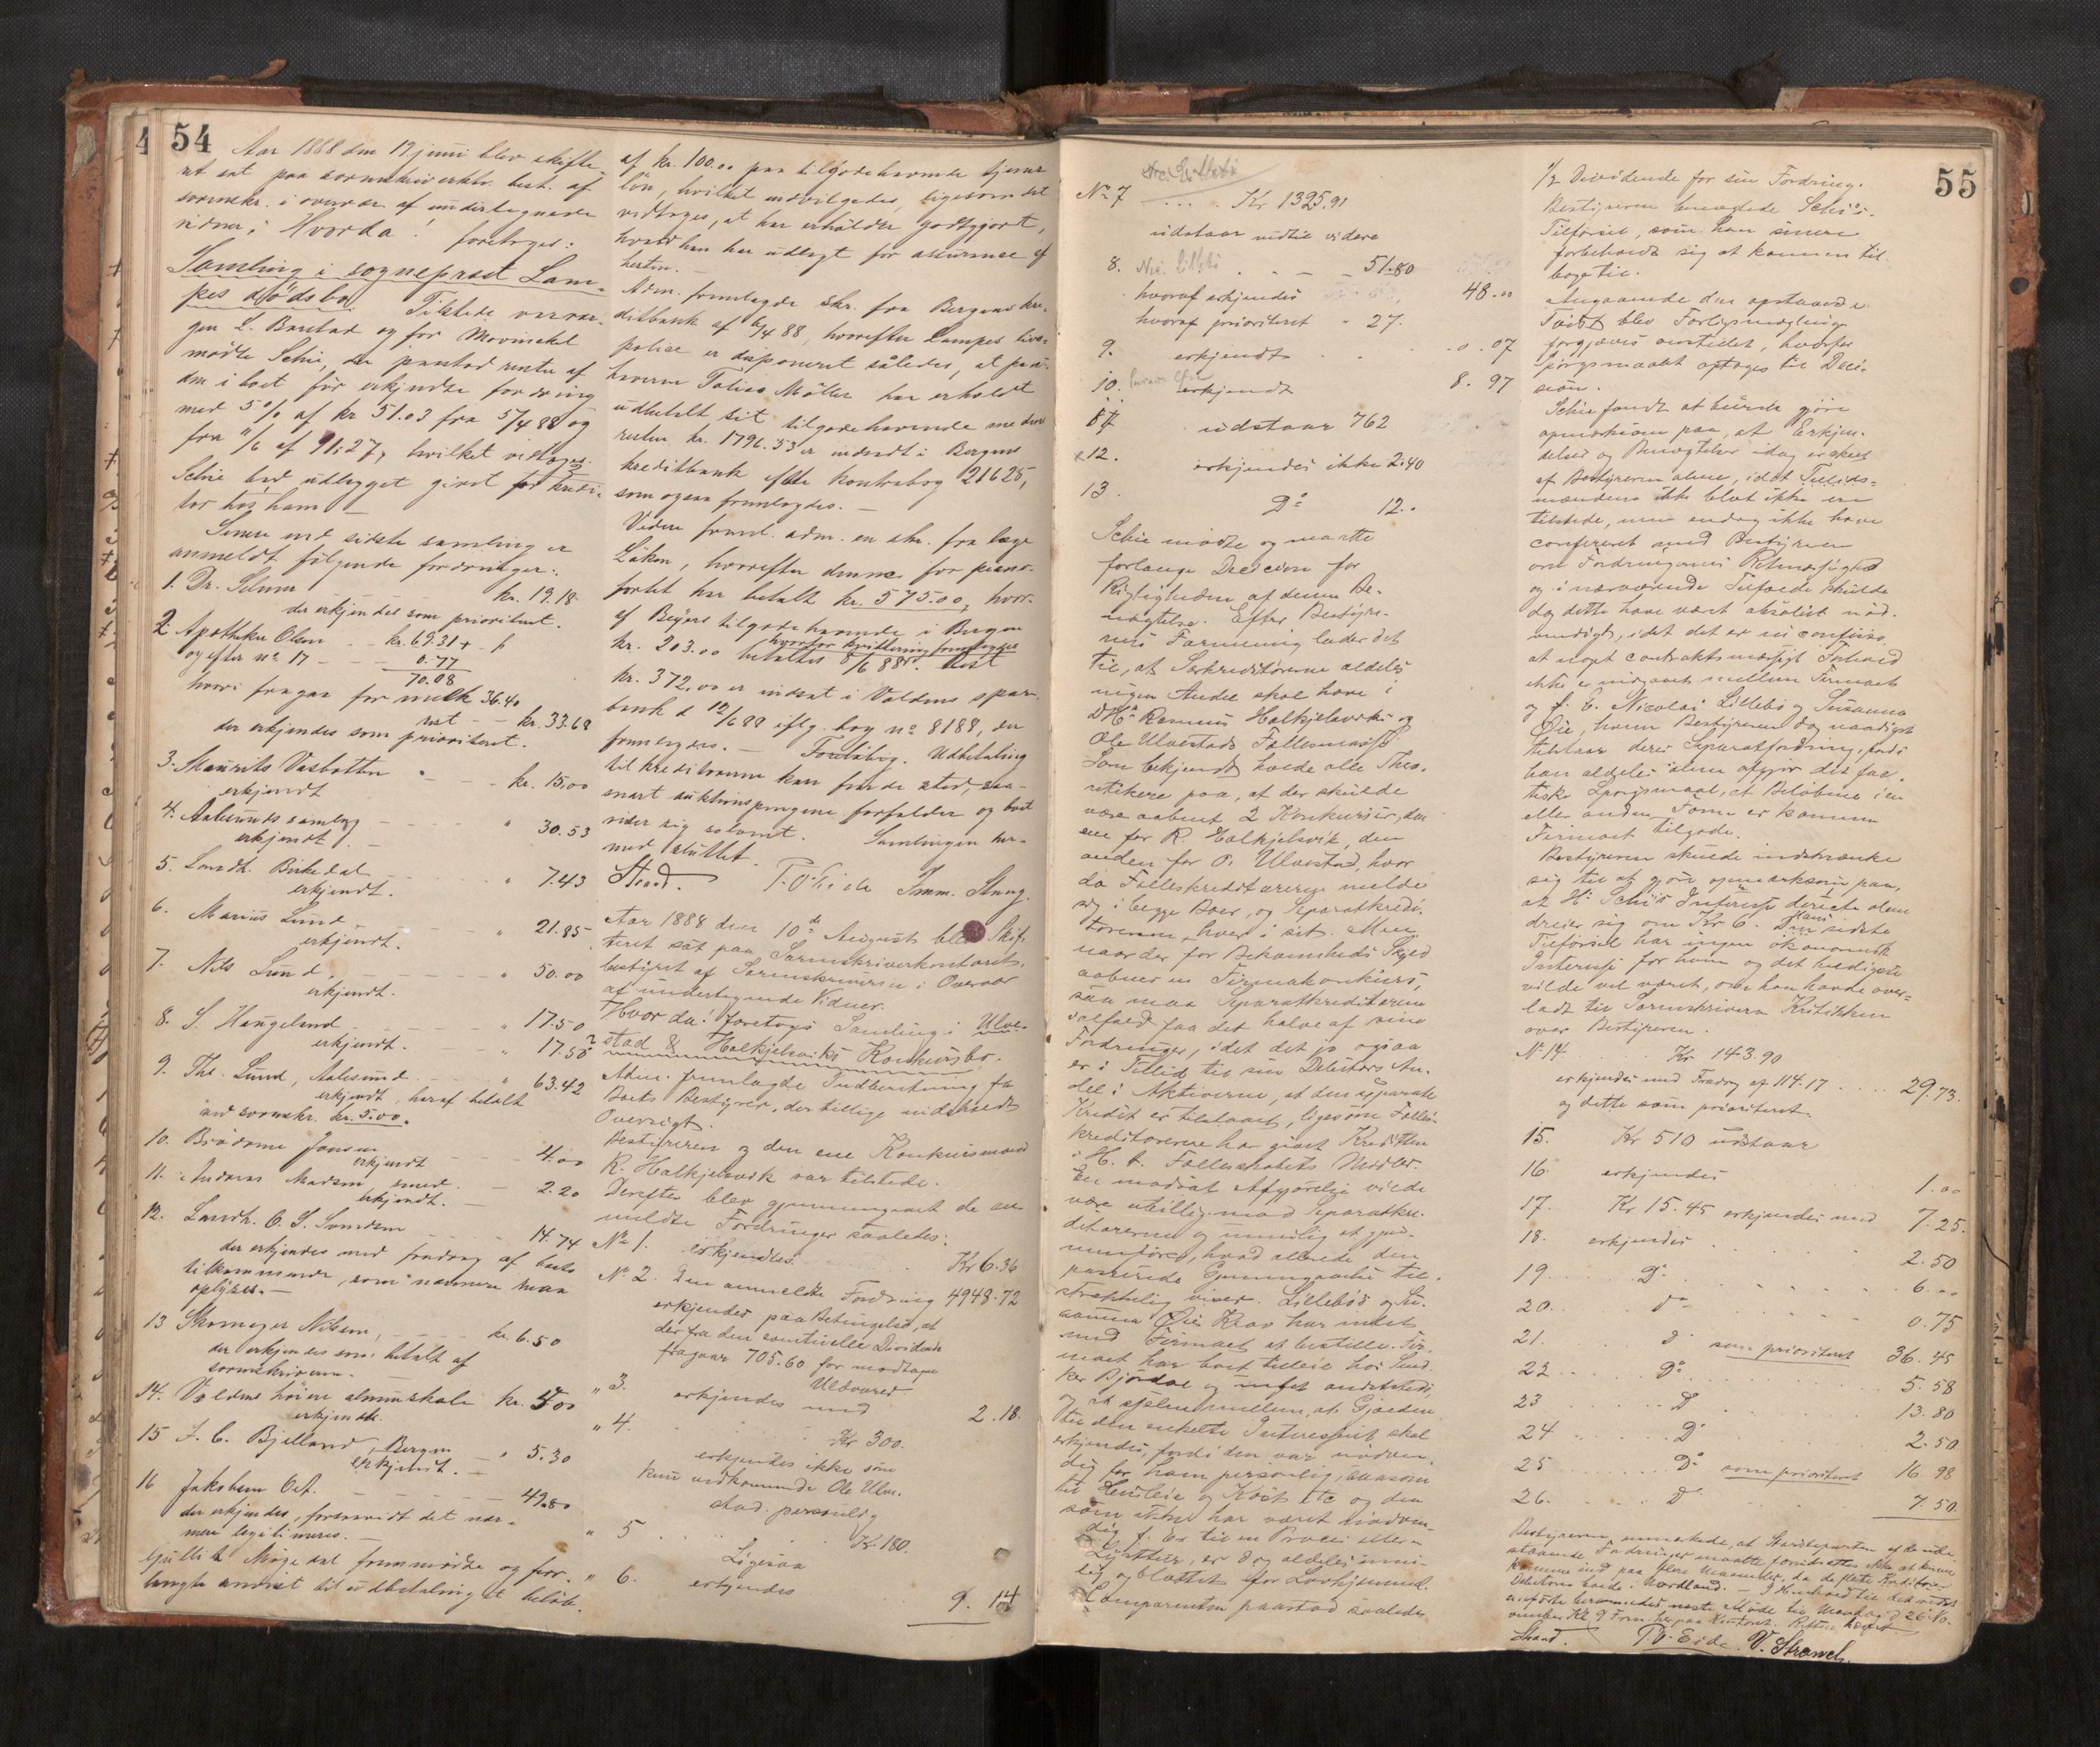 54
Aar 1888 den 19 juni blev skifte-
ret sat paa sorenskriverktr. best. af
sorenskr. i overvær af undertegnede
vidner. Hvorda! foretoges:
Samling i sogneprest Lam-
pes dødsbo. Tilstede var
gen L. Barstad og for Mowinckel
mødte Schie, der paastod renter af
den i boet før erkjendte fordring
med 5% af kr 51.03 fra 5/4 88 og
fra 11/6 af 91.27, hvilket vedtoges.
Schie bad udlægget givet for kredi-
tor hos ham. —
Senere end sidste samling er
anmeldt følgende fordringer:
1. Dr. Selmer kr. 19.18
der erkjendes som prioriteret.
2. Apotheker Olsen — kr. 69.31 +
og efter no 17 — 0.77
70.08
hvori fragaar for melk 36.40
rest — kr. 33.68
der erkjendes som prioriteret.
3. Maurits Vasbotten — kr. 15.00
erkjendt
4. Aalesunds samlag — " 30.53
erkjendt. —
5. Landh. Birkedal — " 7.43
erkjendt.
6. Marius Lund — " 21.85
erkjendt.
7. Nils Lund. — " 50.00
erkjendt.
8. S. Haugeland — " 17.50
erkjendt. — " 17.50
9. Ths. Lund, Aalesund — " 63.42
erkjendt, heraf betalt
ved sorenskr. kr. 5.00.
10. Brødrene Jensen — 4.00
erkjendt
11. Anders Madsen, smed. — 2.20
erkjendt. —
12. Landh. O. S. Svendsen — 14.74
der erkjendes med fradrag af boets
tilkommende, som nærmere maa
oplyses. —
13 Skomager Nilsen, — kr. 6.50
der erkjendes som betalt af
sorenskriveren. —
14. Voldens høiere almueskole kr. 5.00
erkjendt.
15 J. C. Bjelland, Bergen — " 5.30
erkjendt. —
16 Jakobsen Oct. — 49.80
der erkjendes, forsaavidt det nær-
mere legitimeres. —
Møgedal fremmødte og for-
langte anvist til udbetaling et beløb
af kr. 100.00 paa tilgodehavende tjener
løn, hvilket indvilgedes, ligesom det
vedtoges, at han erholder godtgjort,
hvad han har udlagt for assurance af
hesten. —
Adm. fremlagde skr. fra Bergens kre-
ditbank af 6/4 88, hvorefter Lampes livs-
police er disponeret således, at paa-
haveren Tobias Møller har erholdt
udbetalt sit tilgodehavende medens
resten kr. 1796.53 er indsadt i Bergens
kreditbank efter kontrabog 21625,
som ogsaa fremlagdes. —
Videre freml. adm. en skr. fra læge
Løken, hvorefter denne for piano-
fortet har betalt kr. 575.00, hvor-
af Beyers tilgodehavende i Bergen
hvorfor kvittering fremlagdes
kr. 203.00 betaltes 8/6 88. Rest
kr. 372.00 er indsat i Voldens spare-
bank d 12/6 88 iflg. bog no 8188, der
fremlagdes. — Foreløbig. Udbetaling
til kreditorerne kan finde sted, saa-
snart auktionspengene forfalder og boet
viser sig solvent. Samlingen her-
med sluttet.
Strand. P. O. Eide Imm. Strang.
Aar 1888 den 10de August blev Skif-
teret sat paa Sorenskriverkontoret,
bestyret af Sorenskriveren i Overvær
af undertegnede Vidner.
Hvor da! foretoges Samling i Ulve-
stad & Halkjelsviks Konkursbo.
Adm. fremlagde Indberetning fra
Boets Bestyrer, der tillige indeholdt
Oversigt.
Bestyreren og den ene Konkursmand
R. Halkjelsvik var tilstede.
Derefter blev gjennemgaaet de an
meldte Fordringer saaledes:
No 1. erkjendtes Kr 6.36
No 2. Den anmeldte Fordring 4948.72
erkjendes paa Betingelse, at
der fra den eventuelle Dividende
fragaar 705.60 for modtagne
Uldvarer
" 3. erkjendes med 2.18.
" 4. Kr 300.
erkjendes ikke som
kun vedkommende Ole Ulve-
stad personlig
" 5 Kr. 180.
Ligesaa
" 6. erkjendes 9.14
55
No 7 ... Kr 1325.91
udstaar indtil videre
8. Nic. Lillebø — 51.80
hvoraf erkjendes 48.00
hvoraf prioriteret 27.
9. erkjendt 0.07
10. erkjendt 8.97
11 udstaar 762
12. erkjendes ikke 2.40
13 Do 12..
Schie mødte og maatte
forlange Decision for
Rigtigheden af denne Be-
nægtelse. Efter Bestyre-
rens Formening lader det
til, at Særkreditorerne aldeles
ingen Andel skal have i
DHr Rasmus Halkjelsviks og
Ole Ulvestads Fællesmasse.
Som bekjendt holde alle Theo-
retikere paa, at der skulde
være aabnet 2 Konkurser, den
ene for R. Halkjelsvik, den
anden for O. Ulvestad, hvor
da Fælleskreditorerne melde
sig i begge Boer, og Separatkredi-
torerne hver i sit. Men
naar der for Bekvemheds Skyld
aabnes en Firmakonkurs,
saa maa Separatkreditorerne
ialfald faa det halve af sine
Fordringer, idet det jo ogsaa
er i Tillid til sin Debitors An-
del i Aktiverne, at den separate
Kredit er tilstaaet, ligesom Fælles-
kreditorerne har givet Kreditten
i H. t. Fællesskabets Midler.
En modsat Afgjørelse vilde
være ubillig mod Separatkre-
ditorerne og umulig at gjen-
nemføre, hvad allerede den
passerede Gjennemgaaelse til-
strækkelig viser. Lillebøs og Su-
sanna Øies Krav har intet
med Firmaet at bestille. Fir-
maet har boet tilleie hos Sned-
ker Bjørdal og intet andetsteds,
og at sjælne mellem, at Gjælden
til den enkelte Interessent skal
erkjendes, fordi den var nødven-
dig for ham personlig, saasom
til Husleie og Kost etc og den
som ikke har været nødven-
dig f. Ex til en Proces eller
Lysttur, er dog aldeles umu-
lig og blottet for Lovhjemmel.
Comparenten paastod saaledes
1/2 Dividende for sin Fordring.
Bestyreren benægtede Schies
Tilførsel, som han senere
forbeholdt sig at komme til-
bage til.
Angaaende den opstaaede
Tvist blev Forligsmægling
forgjæves anstillet, hvorfor
Spørgsmaalet optages til Deci-
sion.
Schie fandt at burde gjøre
opmærksom paa, at Erkjen-
delser og Benægtelser idag er skeet
af Bestyreren alene, idet Tillids-
mændene ikke blot ikke ere
tilstede, men endog ikke have
confereret med Bestyreren
om Fordringernes Retmæssighed
og i nærværende Tilfælde skulde
dog dette have været absolut nød-
vendigt, idet det er in confesso,
at noget contraktsmæssigt Forhold
ikke er indgaaet mellem Firmaet
og f. E. Nicolai Lillebø og Susanna
Øie, hvem Bestyreren dog naadigst
tilstaar deres Separatfordring, fordi
han aldeles alene afgjør det fac-
tiske Spørgsmaal, at Beløbene i en
eller anden Form er kommen
Firmaet tilgode.
Bestyreren skulde indskrænke
sig til at gjøre opmærksom paa,
at Hr Schies Interesse directe alene
dreier sig om Kr 6. Hans sidste
Tilførsel har ingen økonomisk
Interesse for ham og det heldigste
vilde vel været, om han havde over-
ladt til Sorenskriveren Kritikken
over Bestyreren.
No 14. Kr 143.90
erkjendes med Fradrag af 114.17 29.73.
og dette som prioriteret.
15. Kr 510 udstaar
16. erkjendes 1.00
17. Kr 15.45 erkjendes med 7.25.
18. erkjendes 2.50
19 Do 6.00
20. Do 0.75
21. Do som prioriteret 36.45
22 Do 5.58
23 Do 13.80
24 Do 2.50
25 Do som prioriteret 16.98
26. Do 7.50
Bestyreren anmærkede, at Størsteparten af de ude-
staaende Fordringer maatte forudsættes ikke at kunne
komme ind paa flere Maaneder, da de fleste
Debitorer havde i Nordland. — I Henhold til det
berammedes næste Møde til Mandag d 26 No-
vember Kl. 9 Form. her paa Kontoret. Retten hævet.
Strand. P. O. Eide. V. Strand.